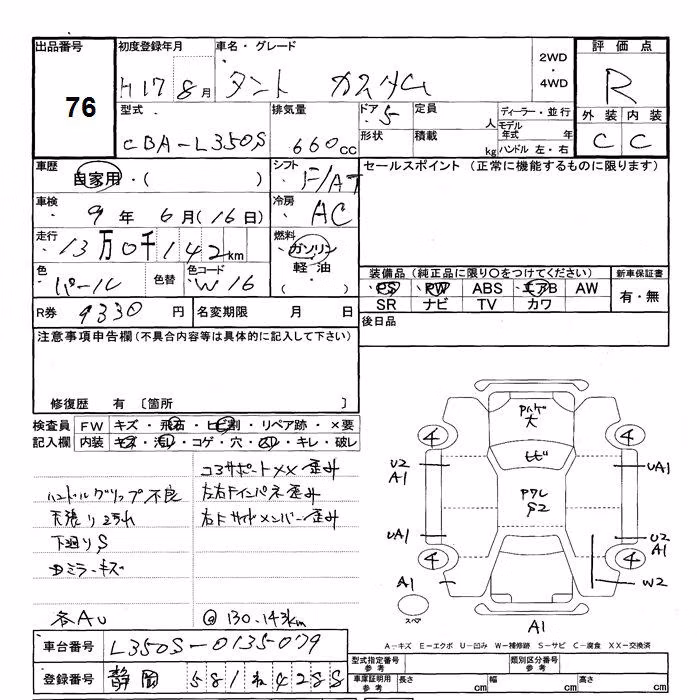 出品番号 初度登録年月 車名・グレード 評価点
76
H17 8月 タント カスタム 2WD ・ 4WD R
型式 排気量 ドア 5 定員 人 ディーラー・並行 外装 内装
モデル年式 年
CBA-L350S 660cc 形状 積載 kg ハンドル 左・右 C C
車歴 自家用・( ) シフト F/AT セールスポイント (正常に機能するものに限ります)
車検 9年 6月(16日) 冷房 AC
走行 13万0千142km 燃料 ガソリン
軽油
色 パール 色替 色コード W16 装備品 (純正品に限り○をつけてください) 新車保証書
PS PW ABS エアB AW 有・無
SR ナビ TV カワ
R券 9330円 名変期限 月 日 後日品
注意事項申告欄(不具合内容等は具体的に記入して下さい)
修復歴 有 〔箇所 〕
検査員 FW キズ・飛石・ヒビ割・リペア跡・×要
記入欄 内装 キズ・汚レ・コゲ・穴・スレ・キレ・破レ
コアサポートXX 歪み
ハンドルグリップ不良 左右Fインパネ歪み
天張り汚れ 右Fサイドメンバー歪み
下廻りS
ミラーキズ
各AU @130.143km
大
ヒビ
S2
4 4
U2 A1 UA1
UA1 U2 A1
4 4
A1 W2
スペア A1
A-キズ E-エクボ U-凹み W-補修跡 S-サビ C-腐食 XX-交換済
車台番号 L350S-0135079
登録番号 静岡 581 ね 4288
型式指定番号 参考 類別区分番号 参考
車庫証明用 参考 長さ cm 幅 cm 高さ cm